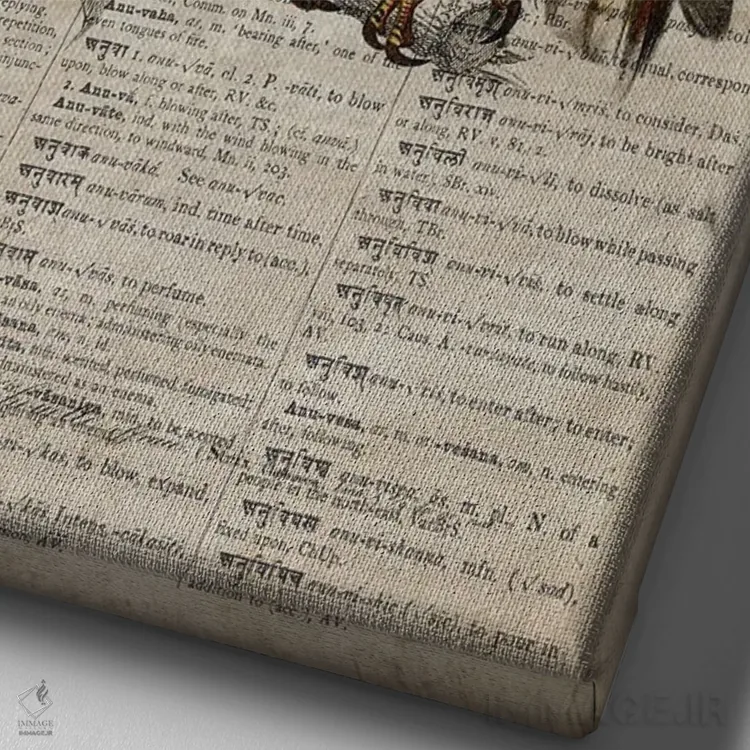 replying,
repetition,
section;
Anu-vaha, as, m. 'bearing after,' one of the
seven tongues of fire.
अनुवा 1. anu-√vā, cl. 2. P. -vāti, to blow
upon, blow along or after, RV. &c.
2. Anu-vā, f. blowing after, TS.; (cf. anvā.)
Anu-vāte, ind. with the wind blowing in the
same direction, to windward, Mn. ii, 203.
अनुवाक anu-vāká. See anu-√vac.
अनुवारम् anu-vāram, ind. time after time.
अनुवाश् anu-√vāś, to roar in reply to (acc.),
BrS.
anu-√vās, to perfume.
as, m. perfuming (especially the
an oily enema; administering oily enemata.
scented, perfumed, fumigated;
administered as an enema.
to blow, expand,
Intens. -cākaśīti,
Comm. on Mn. iii, 7.
equal, correspon
अनुविमृश् anu-vi-√mṛiś, to consider, Daś.
अनुविराज् anu-vi-√rāj, to be bright after
or along, RV. v, 81, 2.
अनुविली anu-vi-√lī, to dissolve (as salt
in water), SBr. xiv.
अनुविवा anu-vi-√vā, to blow while passing
through, TBr.
अनुविविश् anu-vi-√viś, to settle along
separately, TS.
अनुविवृत् anu-vi-√vṛit, to run along, RV.
103, 2: Caus. A. to follow hastily,
AV.
अनुविश् anu-√viś, to enter after; to enter;
to follow.
Anu-veśa, as, m. or -veśana, am, n. entering
after, following.
अनुविश्व anu-viśva, ās, m. pl., N. of a
people in the northeast, VarBrS.
अनुविषण्ण anu-vi-shaṇṇa, mfn. (√sad),
fixed upon, ChUp.
अनुविषिच् anu-vi-shic (√sic), to pour in
addition to (acc.), AV.
IMMAGE
IMMAGE.IR
IMMAGE.IR